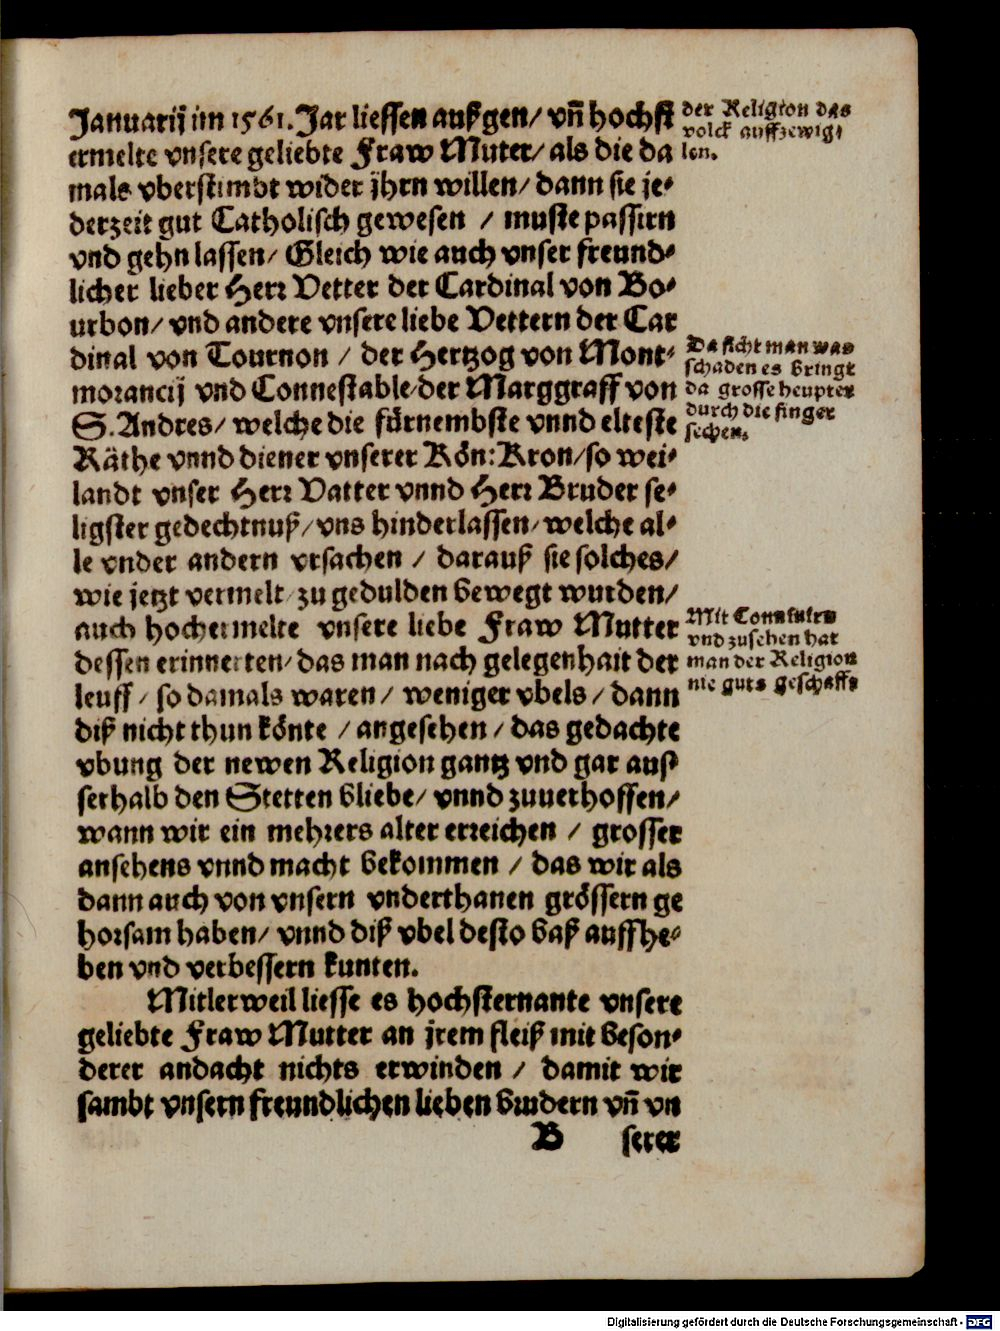 Januarij im 1561. Jar liessen außgen/ vn̄ hochst
ermelte vnsere geliebte Fraw Muter/ als die da
mals vberstimbt wider jhrn willen/ dann sie je⸗
derzeit gut Catholisch gewesen / muste passirn
vnd gehn lassen/ Gleich wie auch vnser freund⸗
licher lieber Herr Vetter der Cardinal von Bo⸗
urbon/ vnd andere vnsere liebe Vettern der Car
dinal von Tournon / der Hertzog von Mont⸗
morancij vnd Connestable/ der Marggraff von
S. Andres/ welche die fürnembste vnnd elteste
Räthe vnnd diener vnserer Kön: Kron/ so wei⸗
landt vnser Herr Vatter vnnd Herr Bruder se⸗
ligster gedechtnuß/ vns hinderlassen/ welche al⸗
le vnder andern vrsachen / darauß sie solches/
wie jetzt vermelt/ zu gedulden bewegt wurden/
auch hochermelte vnsere liebe Fraw Mutter
dessen erinnerten/ das man nach gelegenhait der
leuff / so damals waren/ weniger vbels / dann
diß nicht thun könte / angesehen / das gedachte
vbung der newen Religion gantz vnd gar aus
serhalb den Stetten bliebe/ vnnd zuuerhoffen/
wann wir ein mehrers alter erreichen / grosser
ansehens vnnd macht bekommen / das wir als
dann auch von vnsern vnderthanen grössern ge
horsam haben/ vnnd diß vbel desto baß auffhe⸗
ben vnd verbessern kunten.
Mitlerweil liesse es hochsternante vnsere
geliebte Fraw Mutter an jrem fleiß mit beson⸗
derer andacht nichts erwinden / damit wir
sambt vnsern freundlichen lieben brudern vn̄ vn
B serer
der Religion das
volck auffzewigl
len.
Da sicht man was
schaden es bringt
da grosse heupter
durch die finger
sechen.
Mit Conniuirn
vnd zusehen hat
man der Religion
nie guts geschafft
Digitalisierung gefördert durch die Deutsche Forschungsgemeinschaft - DFG